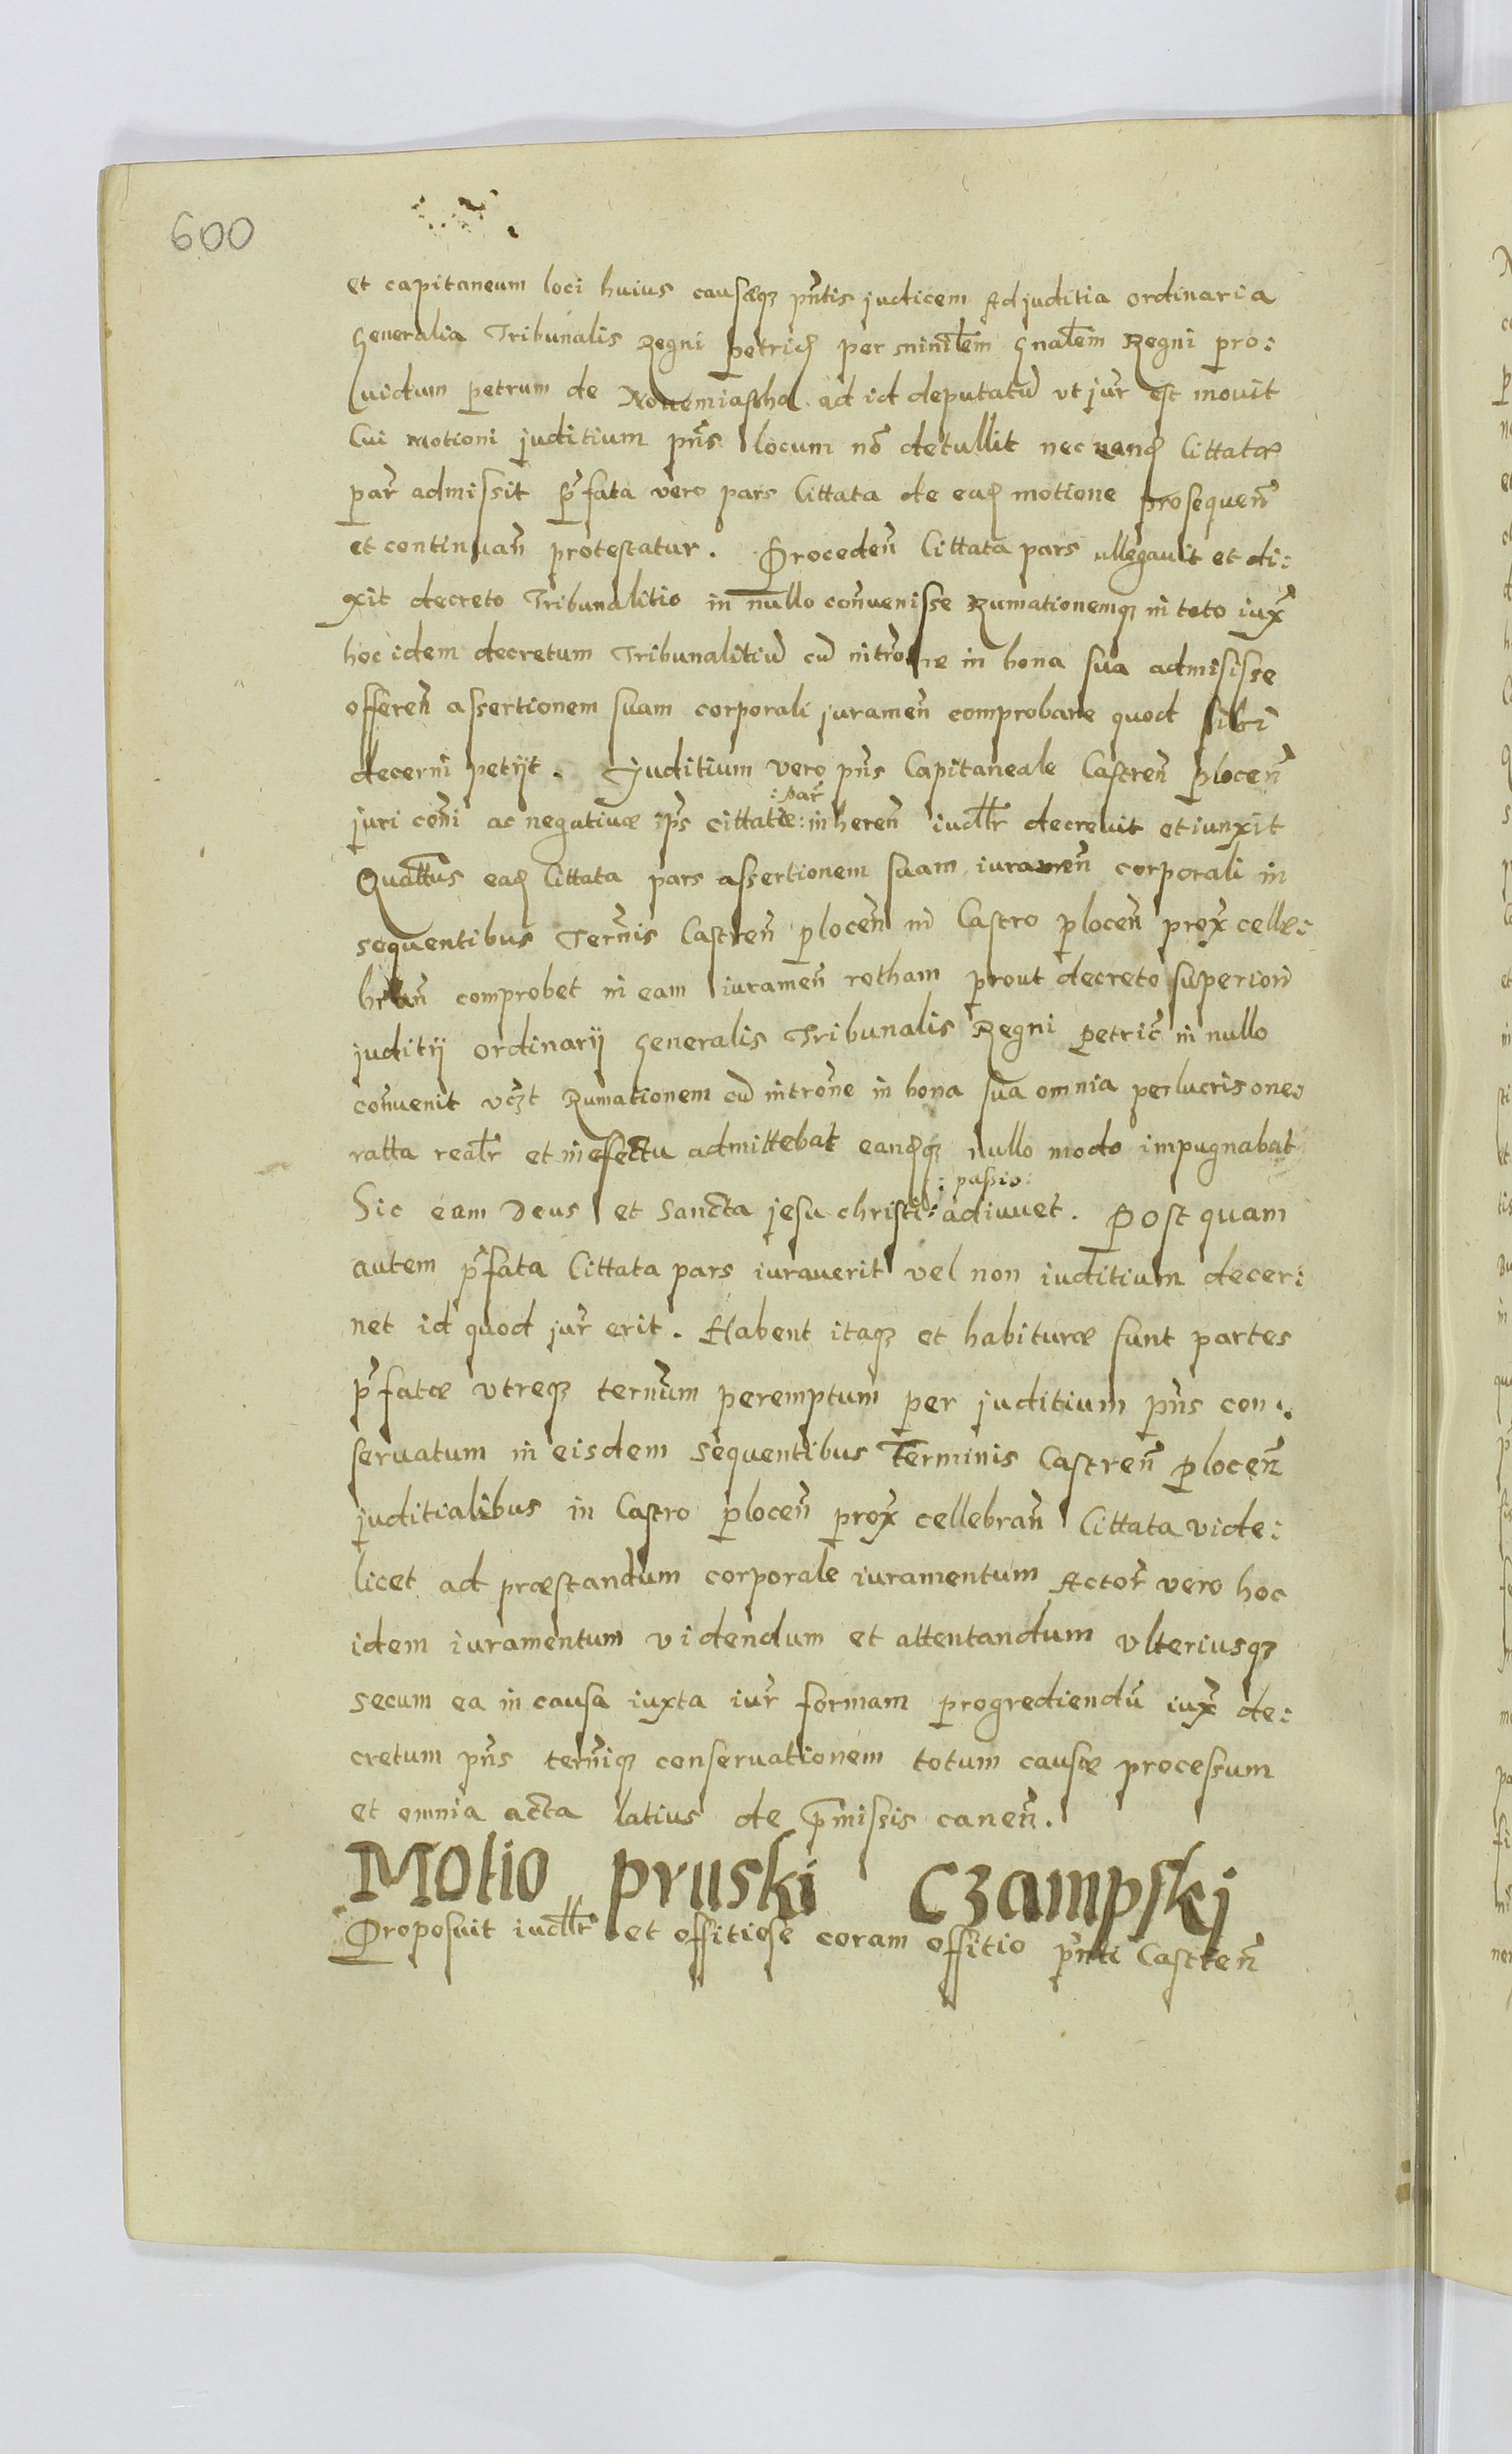 600
et capitaneum loci huius causæq₃ pñtis judicem Ad juditia ordinaria
Generalia Tribunalis Regni petric̃ per minīlem gnalem Regni pro:
uidum petrum de Nouemiastho ad id deputatũ vt jur̃ est mouit
Cui motioni juditium pñs locum nõ detullit nec eand̃ Cittatæ
par̃ admissit p̃fata vero pars Cittata de ead̃ motione prosequeñ
et continuañ protestatur. Procedeñ Cittata pars allegauit et di:
xit decreto Tribunalitio in nullo conuenisse Rumationemq₃ in toto iux̃
hoc idem decretum Tribunalitiũ cũ intrõne in bona sua admisisse
offereñ assertionem suam corporali jurameñ comprobare quod sibi
decerni petijt. Juditium vero pñs Capitaneale Castreñ ploceñ
juri cõni ac negatiuæ ip̃s cittatæ :par̃: inhereñ iudl̃r decreuit et iunxit
Quattus ead̃ Cittata pars assertionem suam jurameñ corporali in
sequentibus Term̃is Castreñ ploceñ in Castro ploceñ prox̃ celle:
brañ comprobet in eam jurameñ rotham prout decreto superiori
juditij ordinarij Generalis Tribunalis Regni petric̃ in nullo
conuenit vc₃t Rumationem cũ intrõne in bona sua omnia per lucris one:
ratta realr̃ et in efectu admittebat eand̃q₃ nullo modo impugnabat
Sic eam Deus et Sancta jesu christi :passio: adiuuet. Post quam
autem p̃fata Cittata pars iurauerit vel non iuditium decer:
net id quod jur̃ erit. Habent itaq₃ et habituræ sunt partes
p̃fatæ vtreq₃ term̃um peremptum per juditium pñs con:
seruatum in eisdem sequentibus Terminis Castreñ ploceñ
juditialibus in Castro ploceñ prox̃ cellebrañ Cittata vide:
licet ad præstandum corporale iuramentum Actor̃ vero hoc
idem iuramentum videndum et attentandum vlteriusq₃
secum ea in causa iuxta iur̃ formam progrediendũ iux̃ de:
cretum pñs term̃iq₃ conseruationem totum causæ processum
et omnia acta latius de p̃missis caneñ.
Motio pruski Czampskj
Proposuit iudl̃r et offitiose coram offitio p̃nti Castreñ